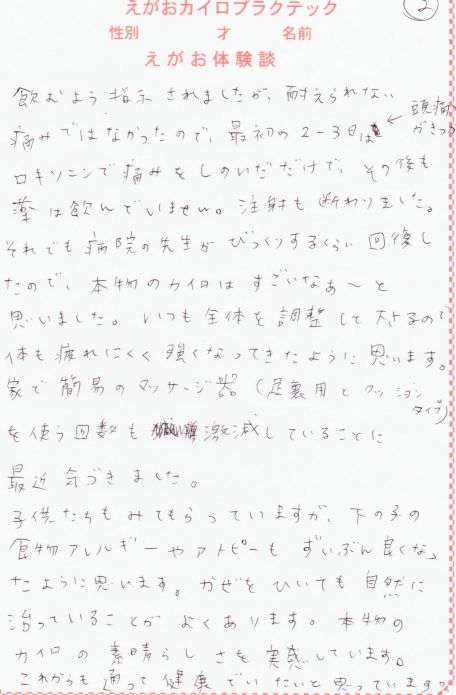 えがおカイロプラクテック
②
性別 才 名前
えがお体験談
飲むよう指示されましたが、耐えられない
痛みではなかったので、最初の2-3日は ← 頭痛が
きつか
ロキソニンで痛みをしのいだだけで、その後も
薬は飲んでいません。注射も断わりました。
それでも病院の先生がびっくりするくらい回復し
たので、本物のカイロはすごいなぁ〜と
思いました。いつも全体を調整して下さるので
体も疲れにくく強くなってきたように思います。
家で簡易のマッサージ器(足裏用とクッション
タイプ)
を使う回数も激減していることに
最近気づきました。
子供たちもみてもらっていますが、下の子の
食物アレルギーやアトピーもずいぶん良くなっ
たように思います。かぜをひいても自然に
治っていることがよくあります。本物の
カイロの素晴らしさを実感しています。
これからも通って健康でいたいと思っています。